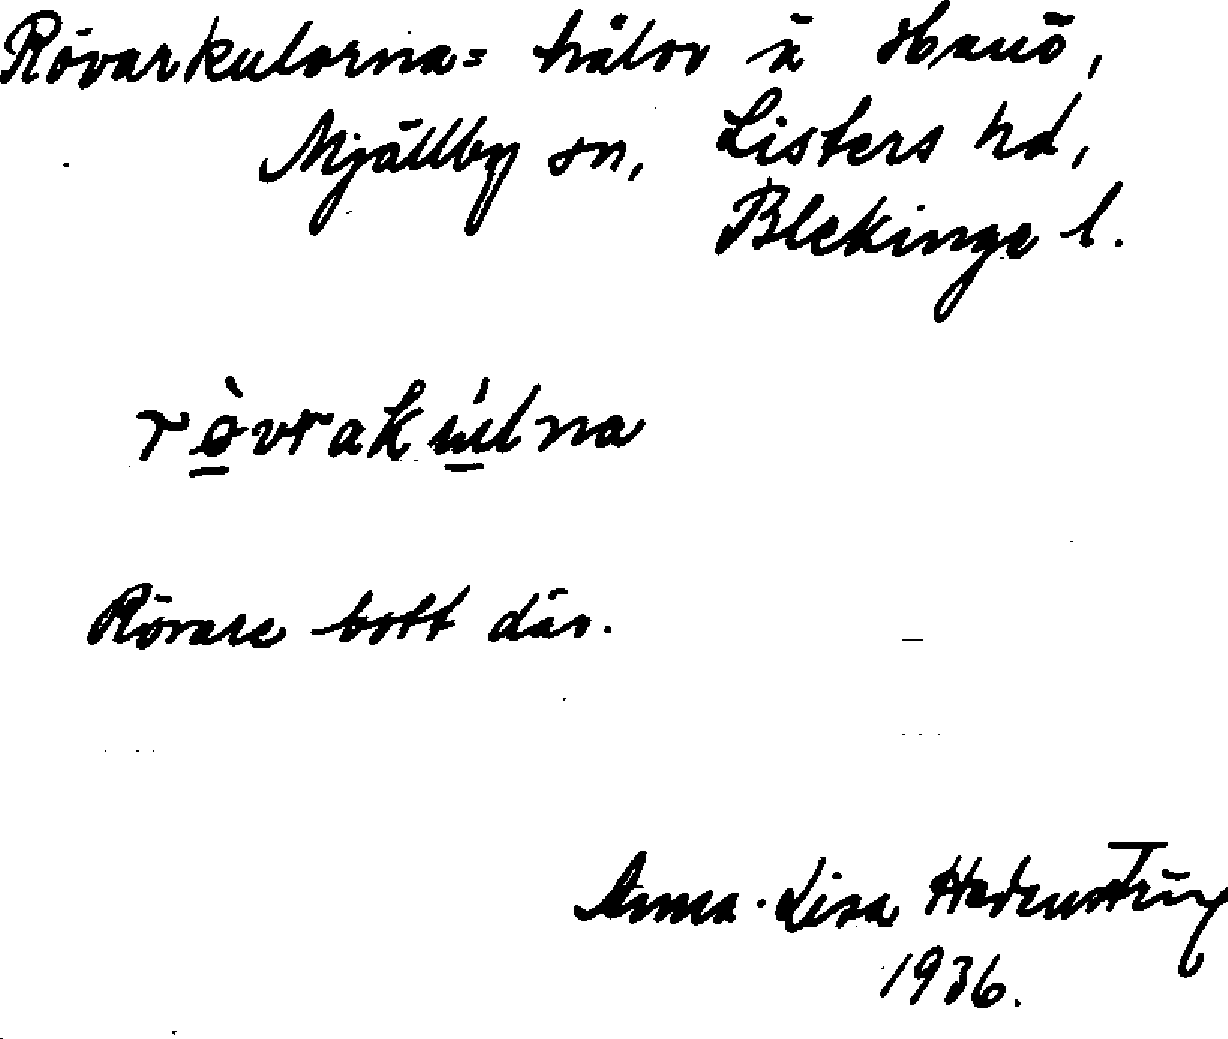 Rövarkulorna = hålor å Hanö,
Mjällby sn, Listers hd,
Blekinge l.
rò̲vrakú̲lna
Rövare bott där.
Anna-Lisa
1936.